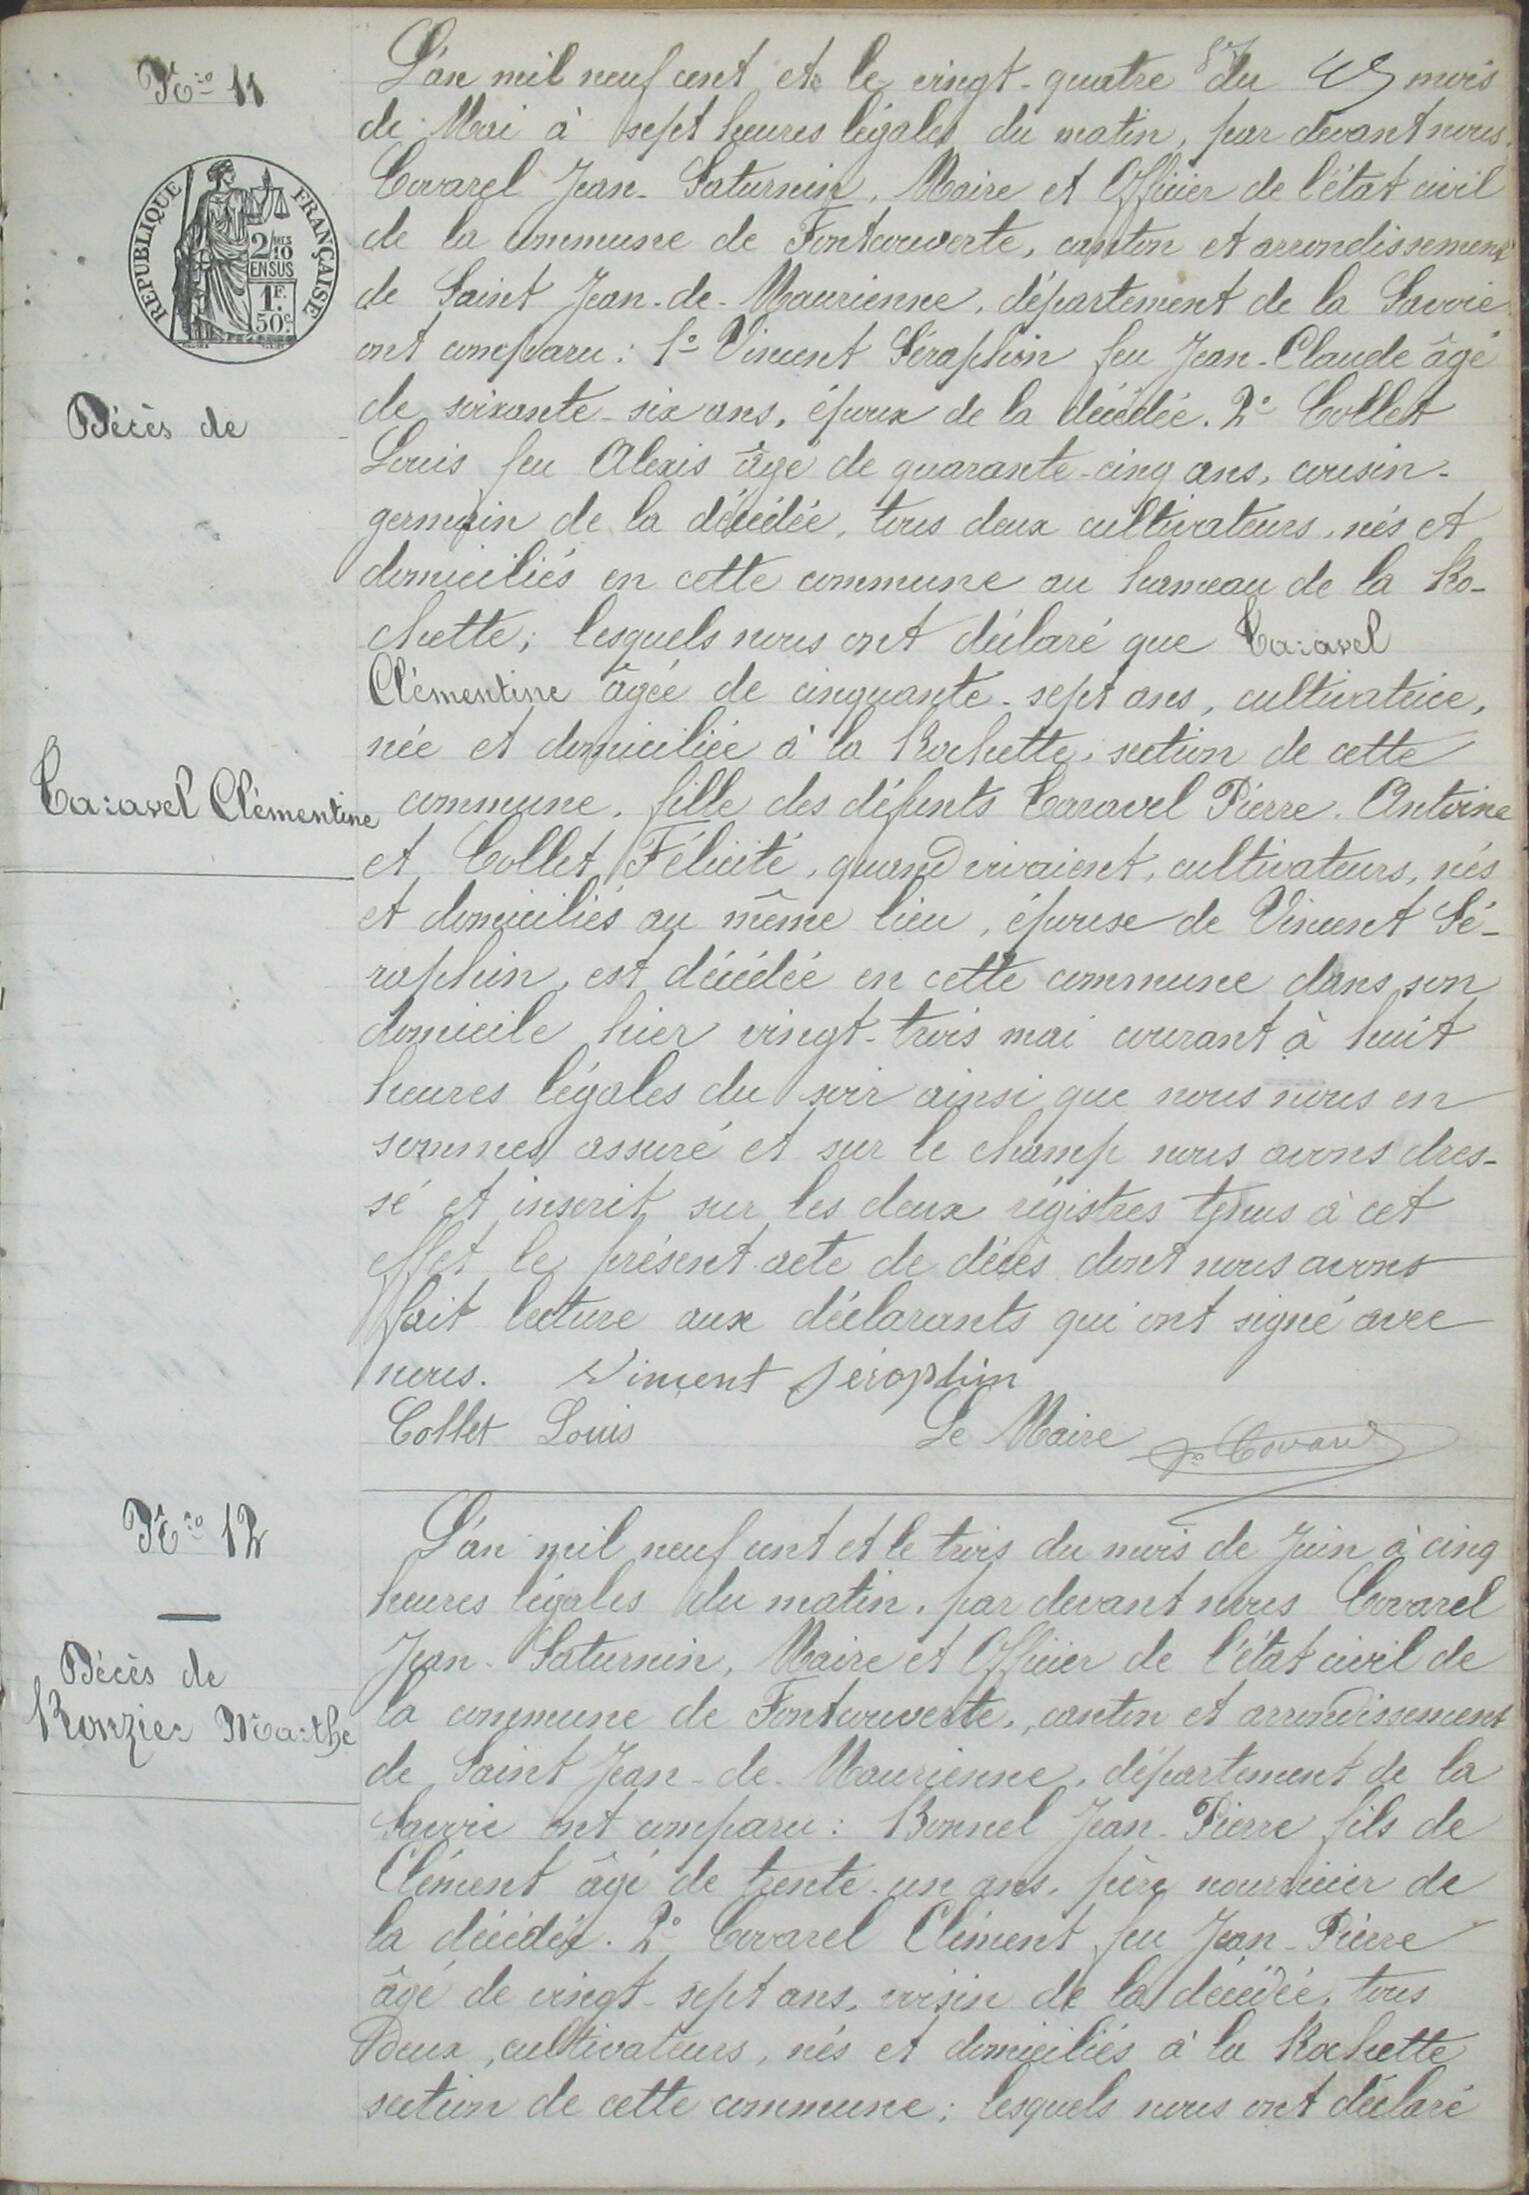 Nro 11
L'an mil neuf cent et le vingt-quatre du mois
de Mai à sept heures légales du matin, par devant nous
Covarel Jean-Saturnin, Maire et Officier de l'état civil
de la commune de Fontcouverte, canton et arrondissement
de Saint Jean-de-Maurienne, département de la Savoie
ont comparu: 1º Vincent Séraphin feu Jean-Claude âgé
de soixante-six ans, époux de la décédée. 2º Collet
Louis feu Alexis âgé de quarante-cinq ans, cousin-
germain de la décédée, tous deux cultivateurs, nés et
domiciliés en cette commune au hameau de la Ro-
chette; lesquels nous ont déclaré que Caravel
Clémentine âgée de cinquante-sept ans, cultivatrice,
née et domiciliée à la Rochette, section de cette
commune, fille des défunts Caravel Pierre-Antoine
et Collet Félicité, quand vivaient, cultivateurs, nés
et domiciliés au même lieu, épouse de Vincent Sé-
raphin, est décédée en cette commune dans son
domicile hier vingt-trois mai courant à huit
heures légales du soir ainsi que nous nous en
sommes assuré et sur le champ nous avons dres-
sé et inscrit sur les deux régistres tenus à cet
effet le présent acte de décès dont nous avons
fait lecture aux déclarants qui ont signé avec
nous. Vincent Séraphin
Collet Louis Le Maire Covarel
REPUBLIQUE FRANÇAISE
2/10MES
EN SUS
1F.
50c.
Décès de
Caravel Clémentine
Nro 12
Décès de
Ronzier Marthe
L'an mil neuf cent et le trois du mois de Juin à cinq
heures légales du matin, par devant nous Covarel
Jean-Saturnin, Maire et Officier de l'état civil de
la commune de Fontcouverte, canton et arrondissement
de Saint Jean-de-Maurienne, département de la
Savoie ont comparu: Bonnel Jean-Pierre fils de
Clément âgé de trente-un ans, père nourricier de
la décédée. 2º Covarel Clément feu Jean-Pierre
âgé de vingt-sept ans, voisin de la décédée, tous
Deux, cultivateurs, nés et domiciliés à la Rochette
section de cette commune; lesquels nous ont déclaré